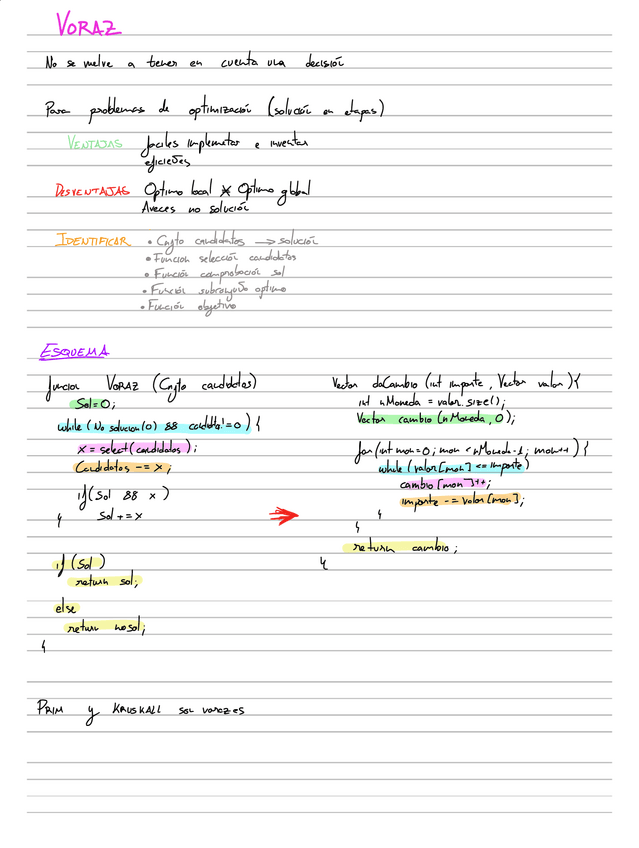 VORAZ
No se vuelve a tener en cuenta una decisión
Para problemas de optimización (solución en etapas)
VENTAJAS faciles implemetar e inventar
eficientes
DESVENTAJAS Optimo local ≠ Optimo global
Aveces no solución
IDENTIFICAR • Cnjto candidatos → solución
• Funcion selección candidatos
• Función comprobación sol
• Función subconjunto optimo
• Función objetivo
ESQUEMA
funcion VORAZ (Cnjto candidatos)
Sol=0;
while (No solucion(0) && candidat!=0) {
x = select(candidatos);
Candidatos -= x;
if(Sol && x)
} Sol+=x
if (Sol)
return sol;
else
return nosol;
}
Vector daCambio (int importe, Vector valor){
int nMoneda = valor.size();
Vector cambio(nMoneda, 0);
for(int mon=0; mon <nMoneda-1; mon++) {
while (valor[mon] <= importe)
cambio[mon]++;
importe -= valor[mon];
}
}
return cambio;
}
PRIM y KRUSKALL son voraces